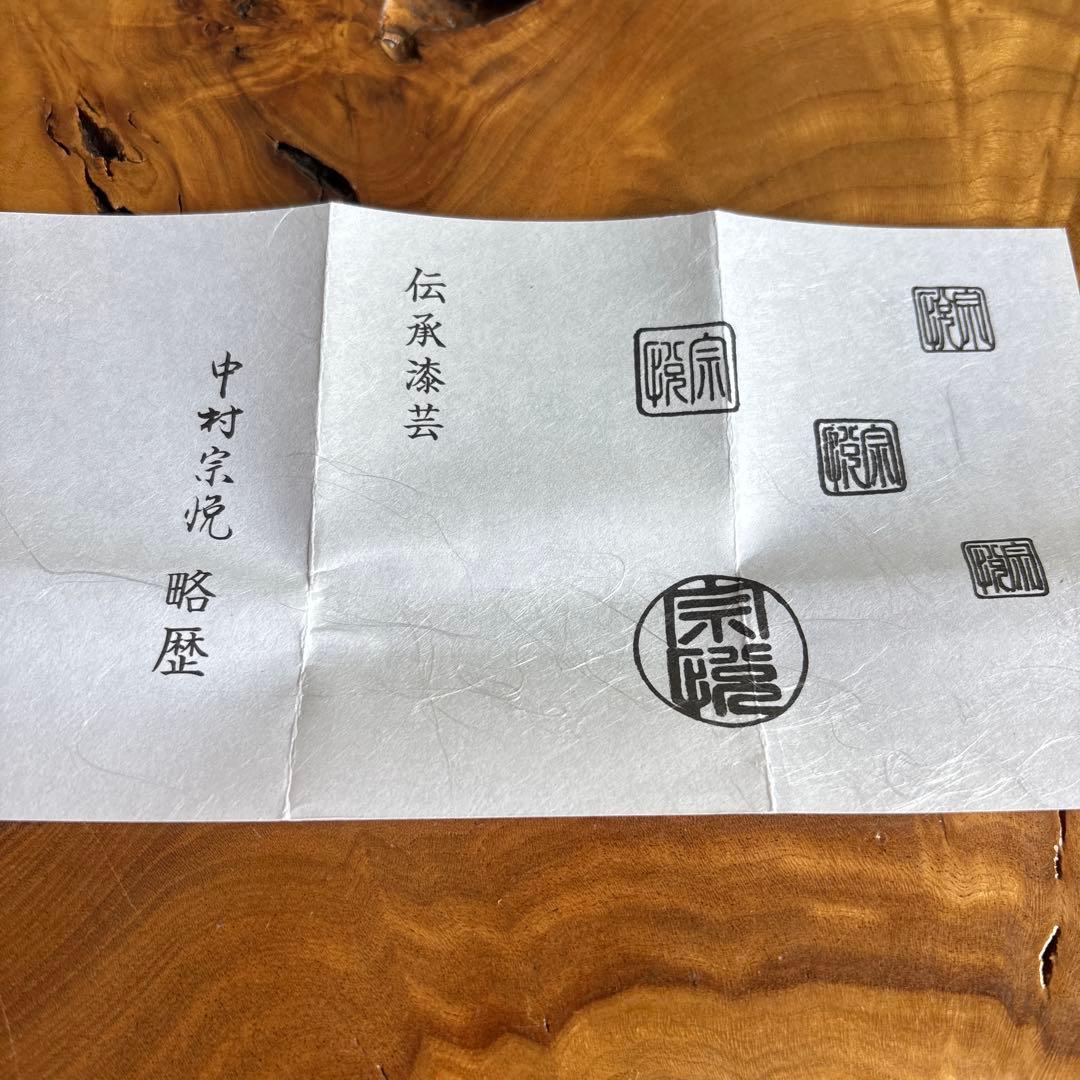 宗悦
宗悦
宗悦
宗悦
宗悦
伝承漆芸
中村宗悦 略歴